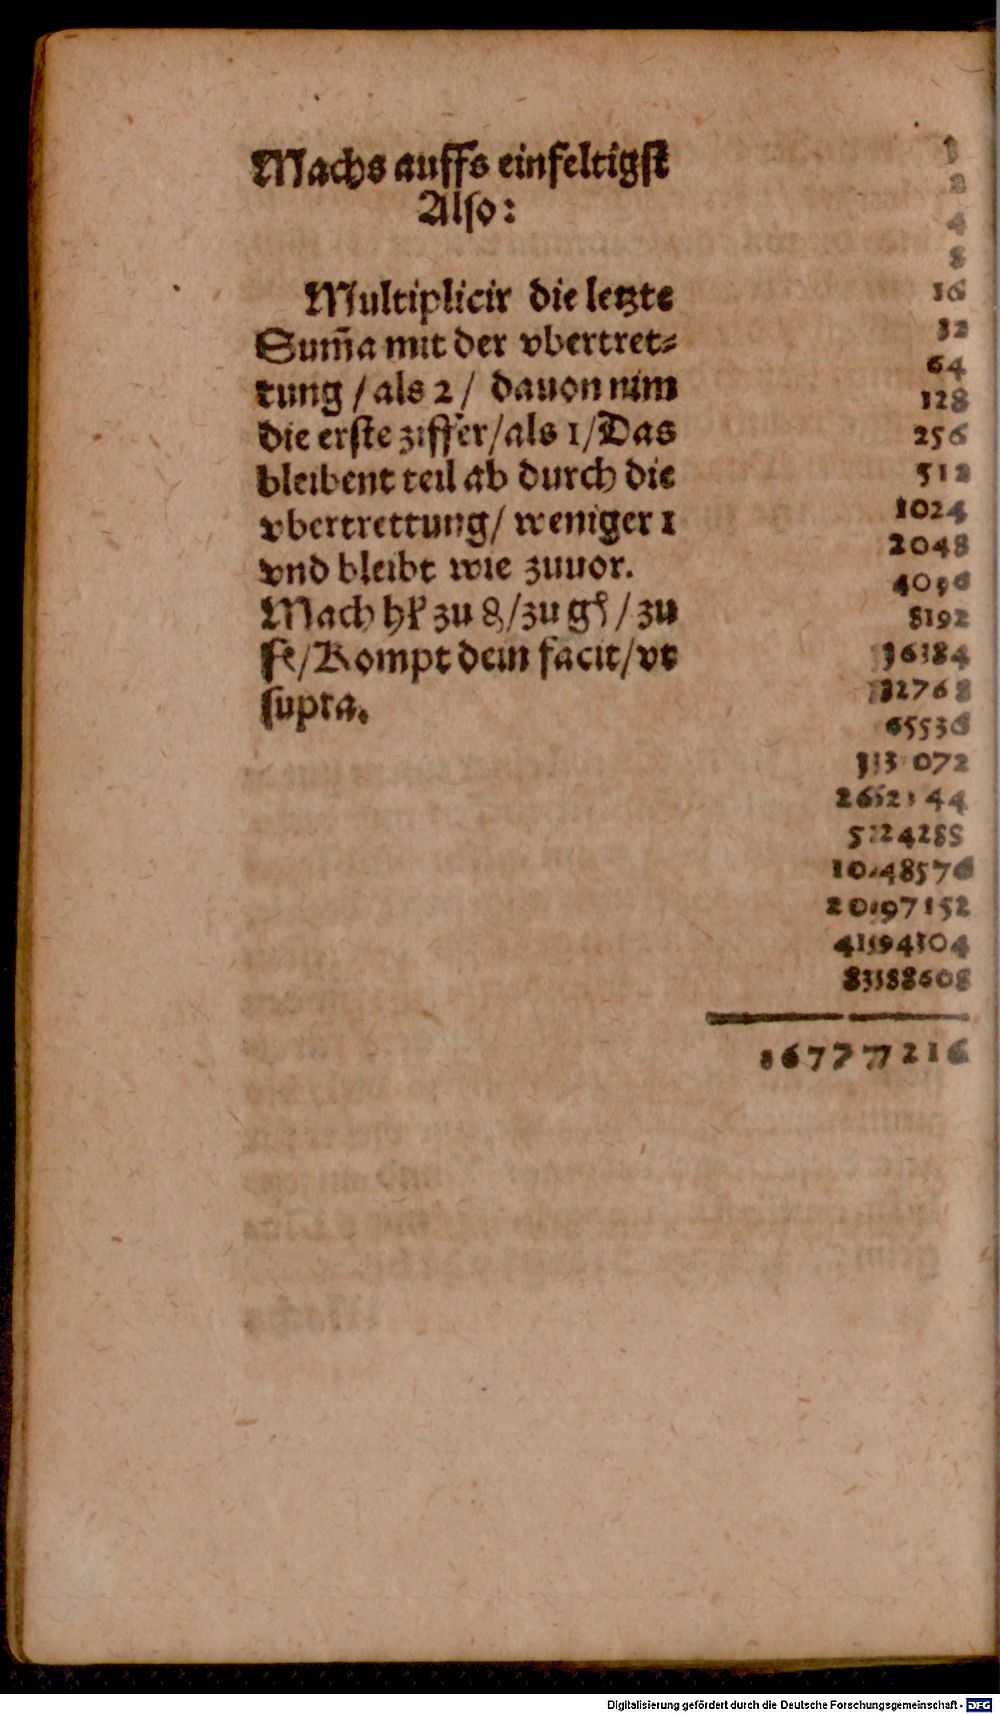 Machs auffs einfeltigst
Also:
Multiplicir die letzte
Sum̃a mit der vbertret⸗
tung / als 2 / dauon nim
die erste ziffer / als 1 / Das
bleibent teil ab durch die
vbertrettung / weniger 1
vnd bleibt wie zuuor.
Mach zu / zu / zu
/ Kompt dein facit / vt
supra.
1
2
4
8
16
32
64
128
256
512
1024
2048
4096
8192
16384
32768
65536
131072
262144
524288
1048576
2097152
4194304
8388608
16777216
Digitalisierung gefördert durch die Deutsche Forschungsgemeinschaft - DFG